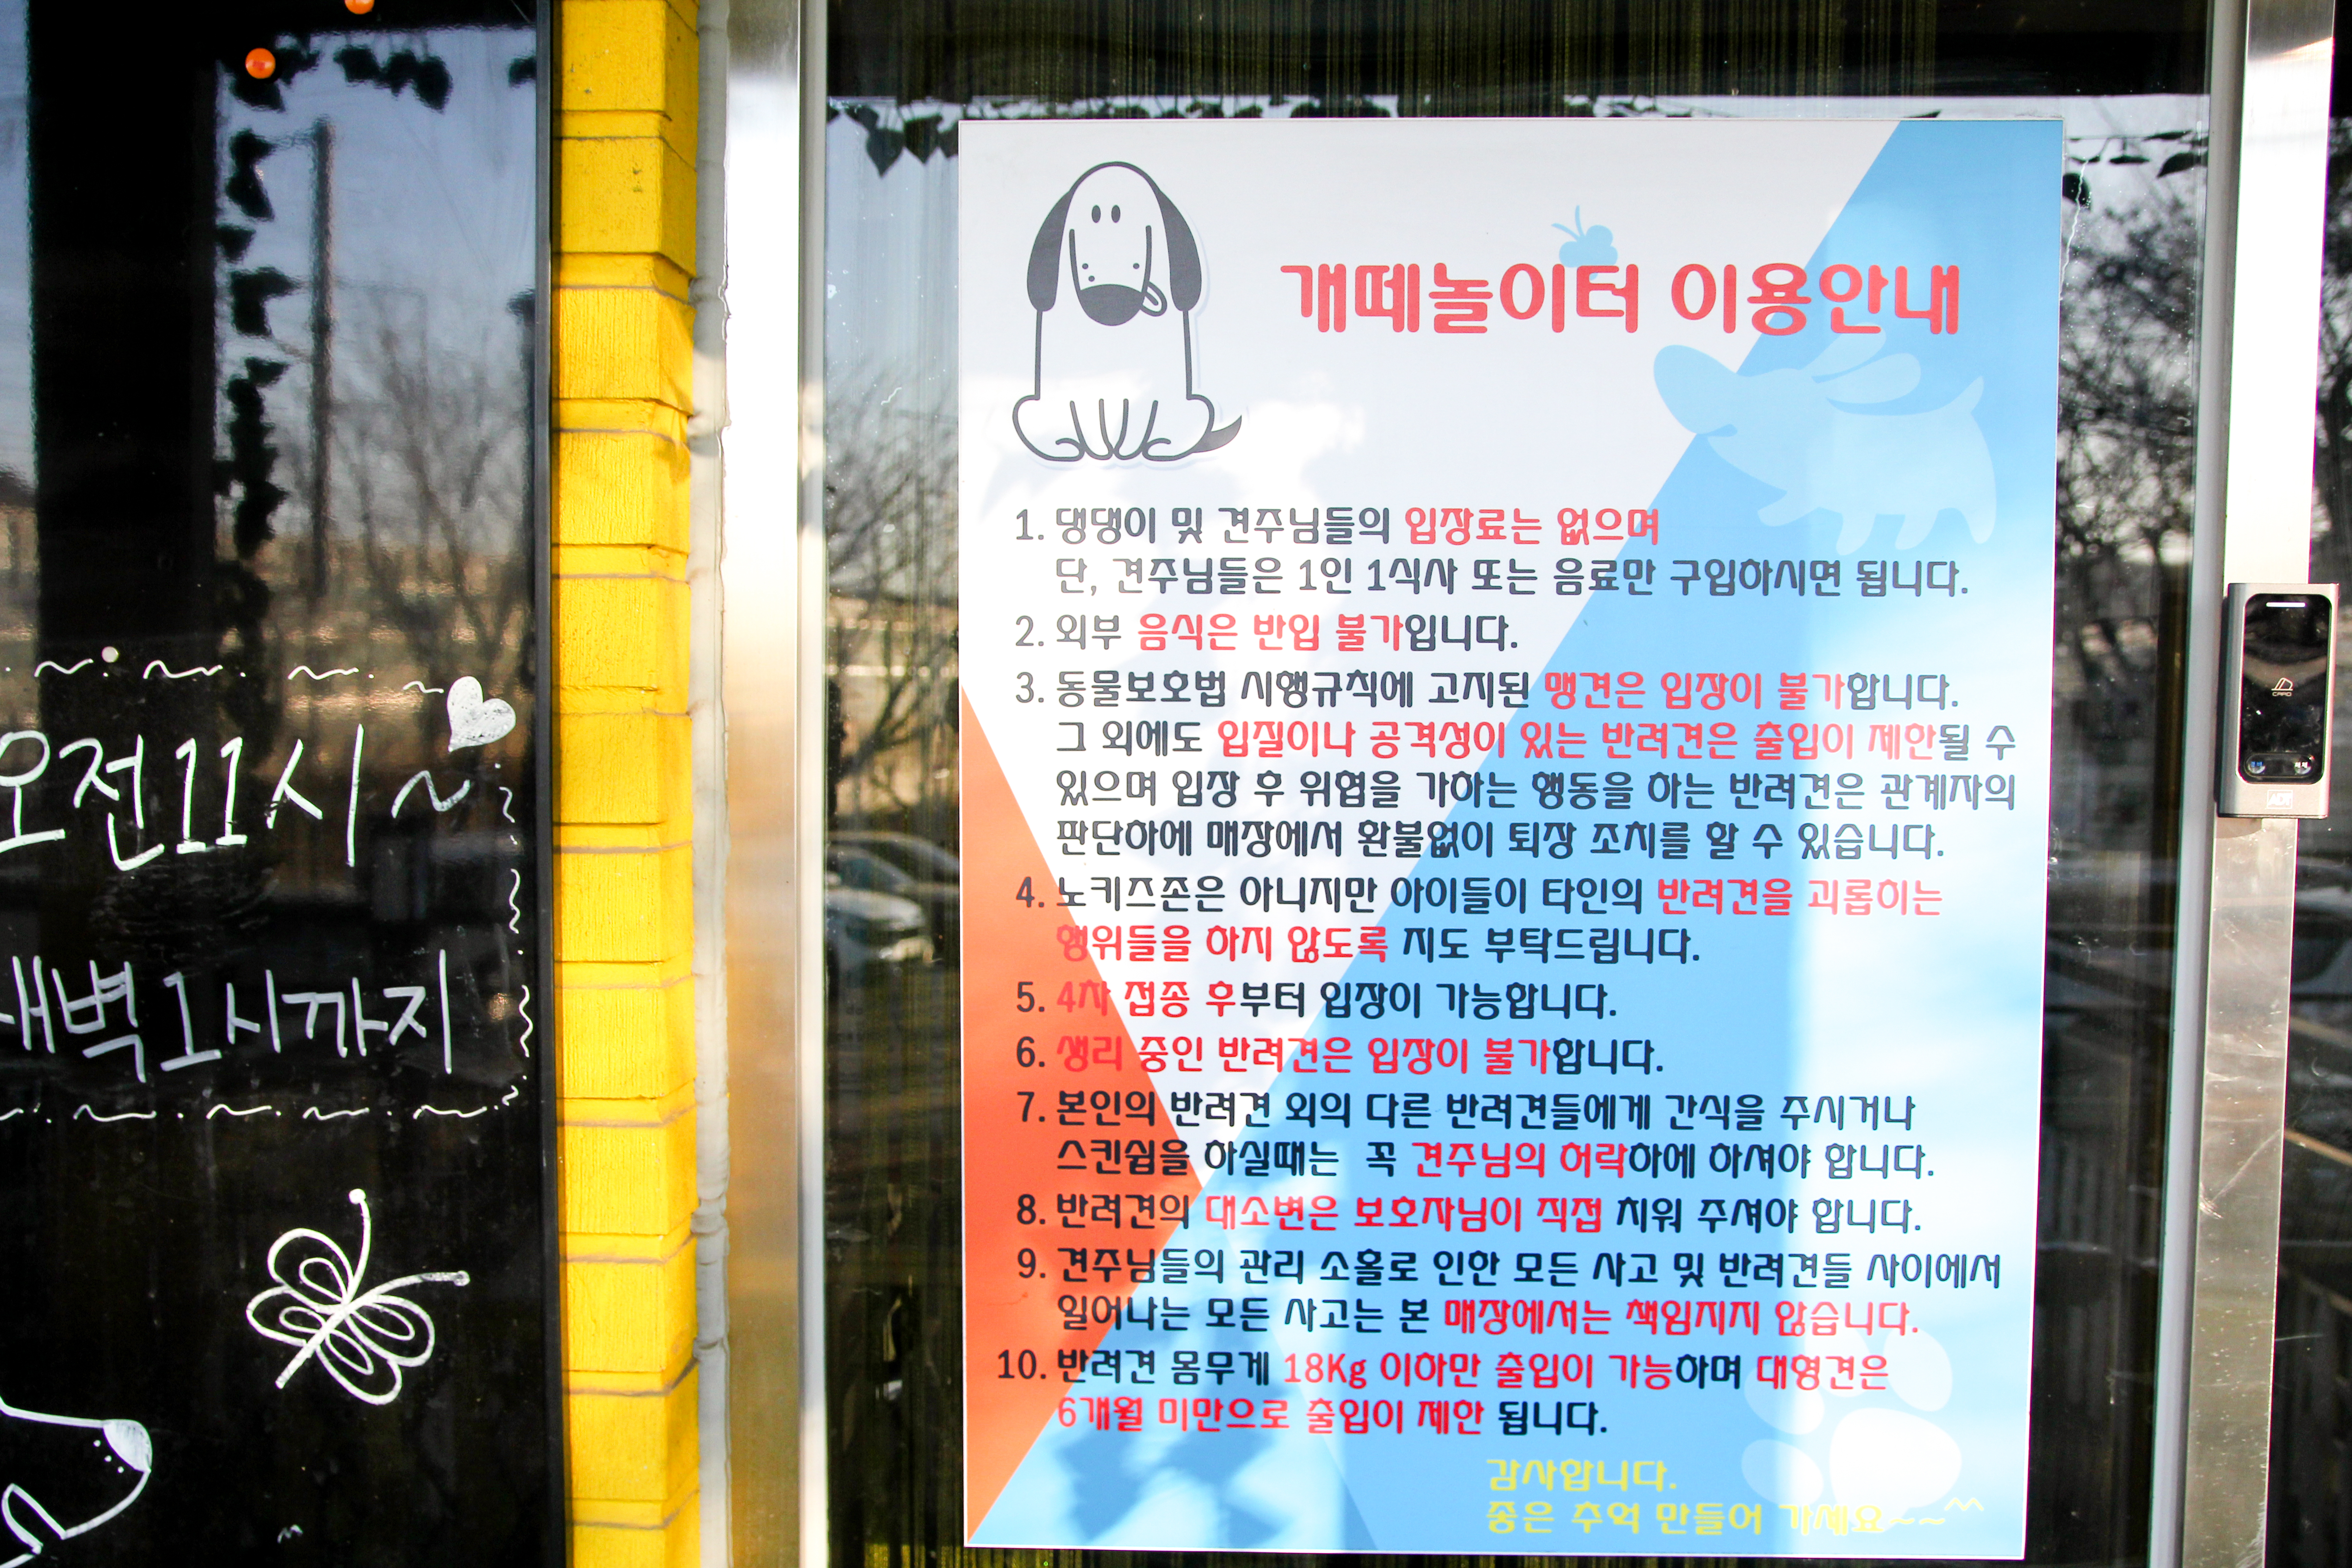 오전11시~
새벽1시까지
개떼놀이터 이용안내
1. 댕댕이 및 견주님들의 입장료는 없으며
단, 견주님들은 1인 1식사 또는 음료만 구입하시면 됩니다.
2. 외부 음식은 반입 불가입니다.
3. 동물보호법 시행규칙에 고지된 맹견은 입장이 불가합니다.
그 외에도 입질이나 공격성이 있는 반려견은 출입이 제한될 수
있으며 입장 후 위협을 가하는 행동을 하는 반려견은 관계자의
판단하에 매장에서 환불없이 퇴장 조치를 할 수 있습니다.
4. 노키즈존은 아니지만 아이들이 타인의 반려견을 괴롭히는
행위들을 하지 않도록 지도 부탁드립니다.
5. 4차 접종 후부터 입장이 가능합니다.
6. 생리 중인 반려견은 입장이 불가합니다.
7. 본인의 반려견 외의 다른 반려견들에게 간식을 주시거나
스킨쉽을 하실때는 꼭 견주님의 허락하에 하셔야 합니다.
8. 반려견의 대소변은 보호자님이 직접 치워 주셔야 합니다.
9. 견주님들의 관리 소홀로 인한 모든 사고 및 반려견들 사이에서
일어나는 모든 사고는 본 매장에서는 책임지지 않습니다.
10. 반려견 몸무게 18Kg 이하만 출입이 가능하며 대형견은
6개월 미만으로 출입이 제한 됩니다.
감사합니다.
좋은 추억 만들어 가세요~~^^
CAPS
ADT